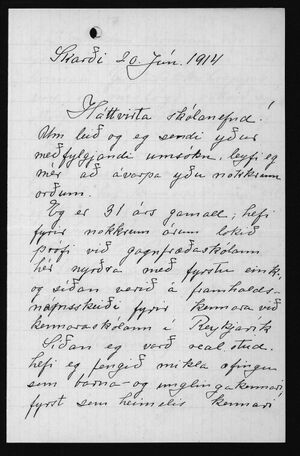 Skarði 20. Jún. 1914
Háttvirta skólanefnd!
Um leið og eg sendi yður
meðfylgjandi umsókn, leyfi eg
mér að ávarpa yður nokkrum
orðum.
Eg er 31 árs gamall; hefi
fyrir nokkrum árum lokið
prófi við gagnfræðaskólann
hér nyrðra með fyrstu eink.
og síðan verið á framhalds-
námsskeiði fyrir kennara við
kennaraskólann í Reykjavík
Síðan eg varð real. stud.
hefi eg fengið mikla æfingu
sem barna- og unglingakennari,
fyrst sem heimilis kennari